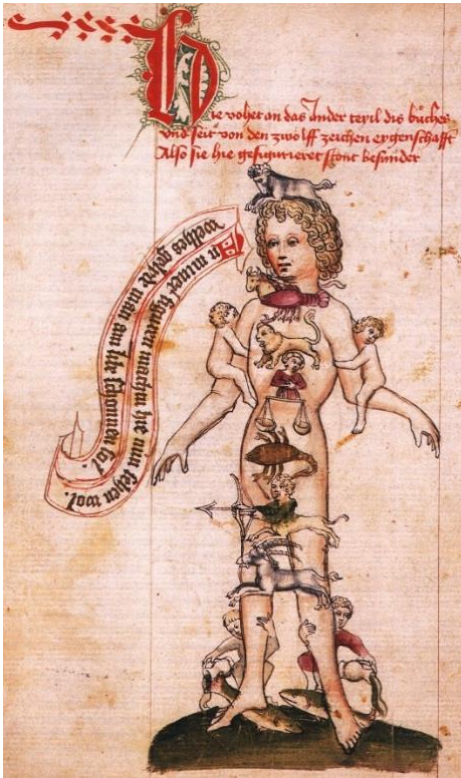 Hie vohet an das Ander teyil dis bůches
vnd seit von den zwölff zeichen eygenschafft
Also sie hie gefigurieret stont besunder
An miner figueren machtu hie nün sehen wol.
welches gelyde man am libe schonnen sol.